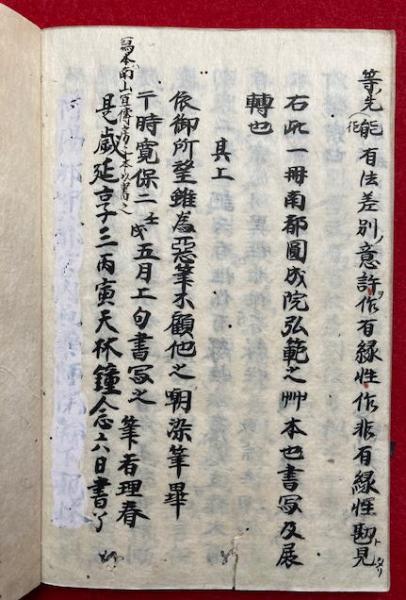 等先能有法差別意許作有縁性作非有縁性勘見
右此一冊南都圓成院弘範之艸本也書写及展
轉也
具工
依御所望雖為悪筆不顧他之嘲染筆畢
于時寛保二壬戌五月上旬書写之 筆者理春
寫本南山宜傳房之本以書之
是歳延享三丙寅天林鐘念六日書了